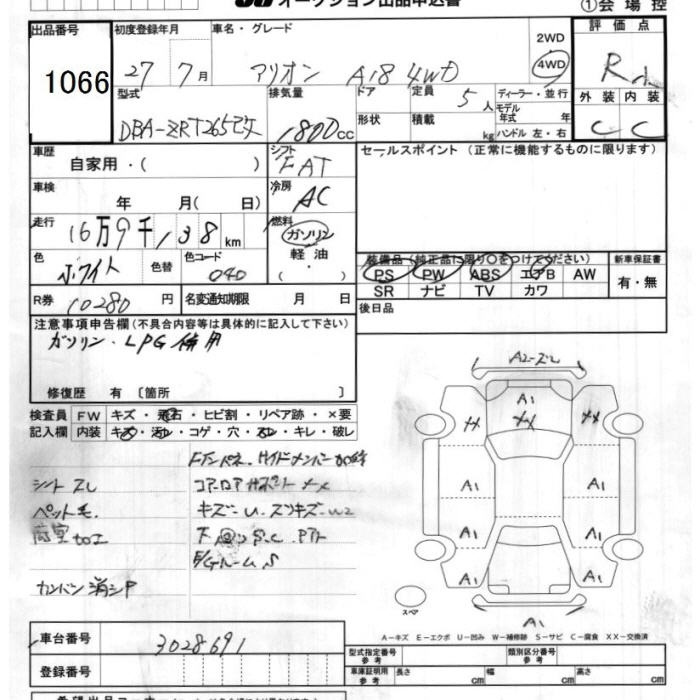 オークション出品申込書
①会場控
出品番号 初度登録年月 車名・グレード 評価点
1066 27 7月 アリオン A18 4WD 2WD 4WD R
型式 排気量 ドア 定員 5人 ディーラー・並行 外装 内装
モデル年式 年
DBA-ZRT265 1800cc 形状 積載 kg ハンドル 左・右 C C
車歴 シフト セールスポイント (正常に機能するものに限ります)
自家用・( ) FAT
車検 冷房
年 月( 日) AC
走行 16万9千138km 燃料
ガソリン
軽油
色 ホワイト 色替 色コード 040
装備品(純正品に限り〇をつけてください) 新車保証書
PS PW ABS エアB AW 有・無
SR ナビ TV カワ
R券 10280円 名変通知期限 月 日 後日品
注意事項申告欄(不具合内容等は具体的に記入して下さい)
ガソリン・LPG併用
修復歴 有〔箇所 〕
検査員 FW キズ・飛石・ヒビ割・リペア跡・×要
記入欄 内装 キズ・汚レ・コゲ・穴・スレ・キレ・破レ
シートスレ
ペット毛
荷室加工
カンバン消シP
コアロアサポート XX
キズ-U.
A2-ズレ
A1
XX
XX
A1 A1
A1 A1
A1 A1
A1
スペア
A-キズ E-エクボ U-凹み W-補修跡 S-サビ C-腐食 XX-交換済
車台番号 3028691
型式指定番号 参考 類別区分番号 参考
登録番号 車庫証明用 参考 長さ cm 幅 cm 高さ cm